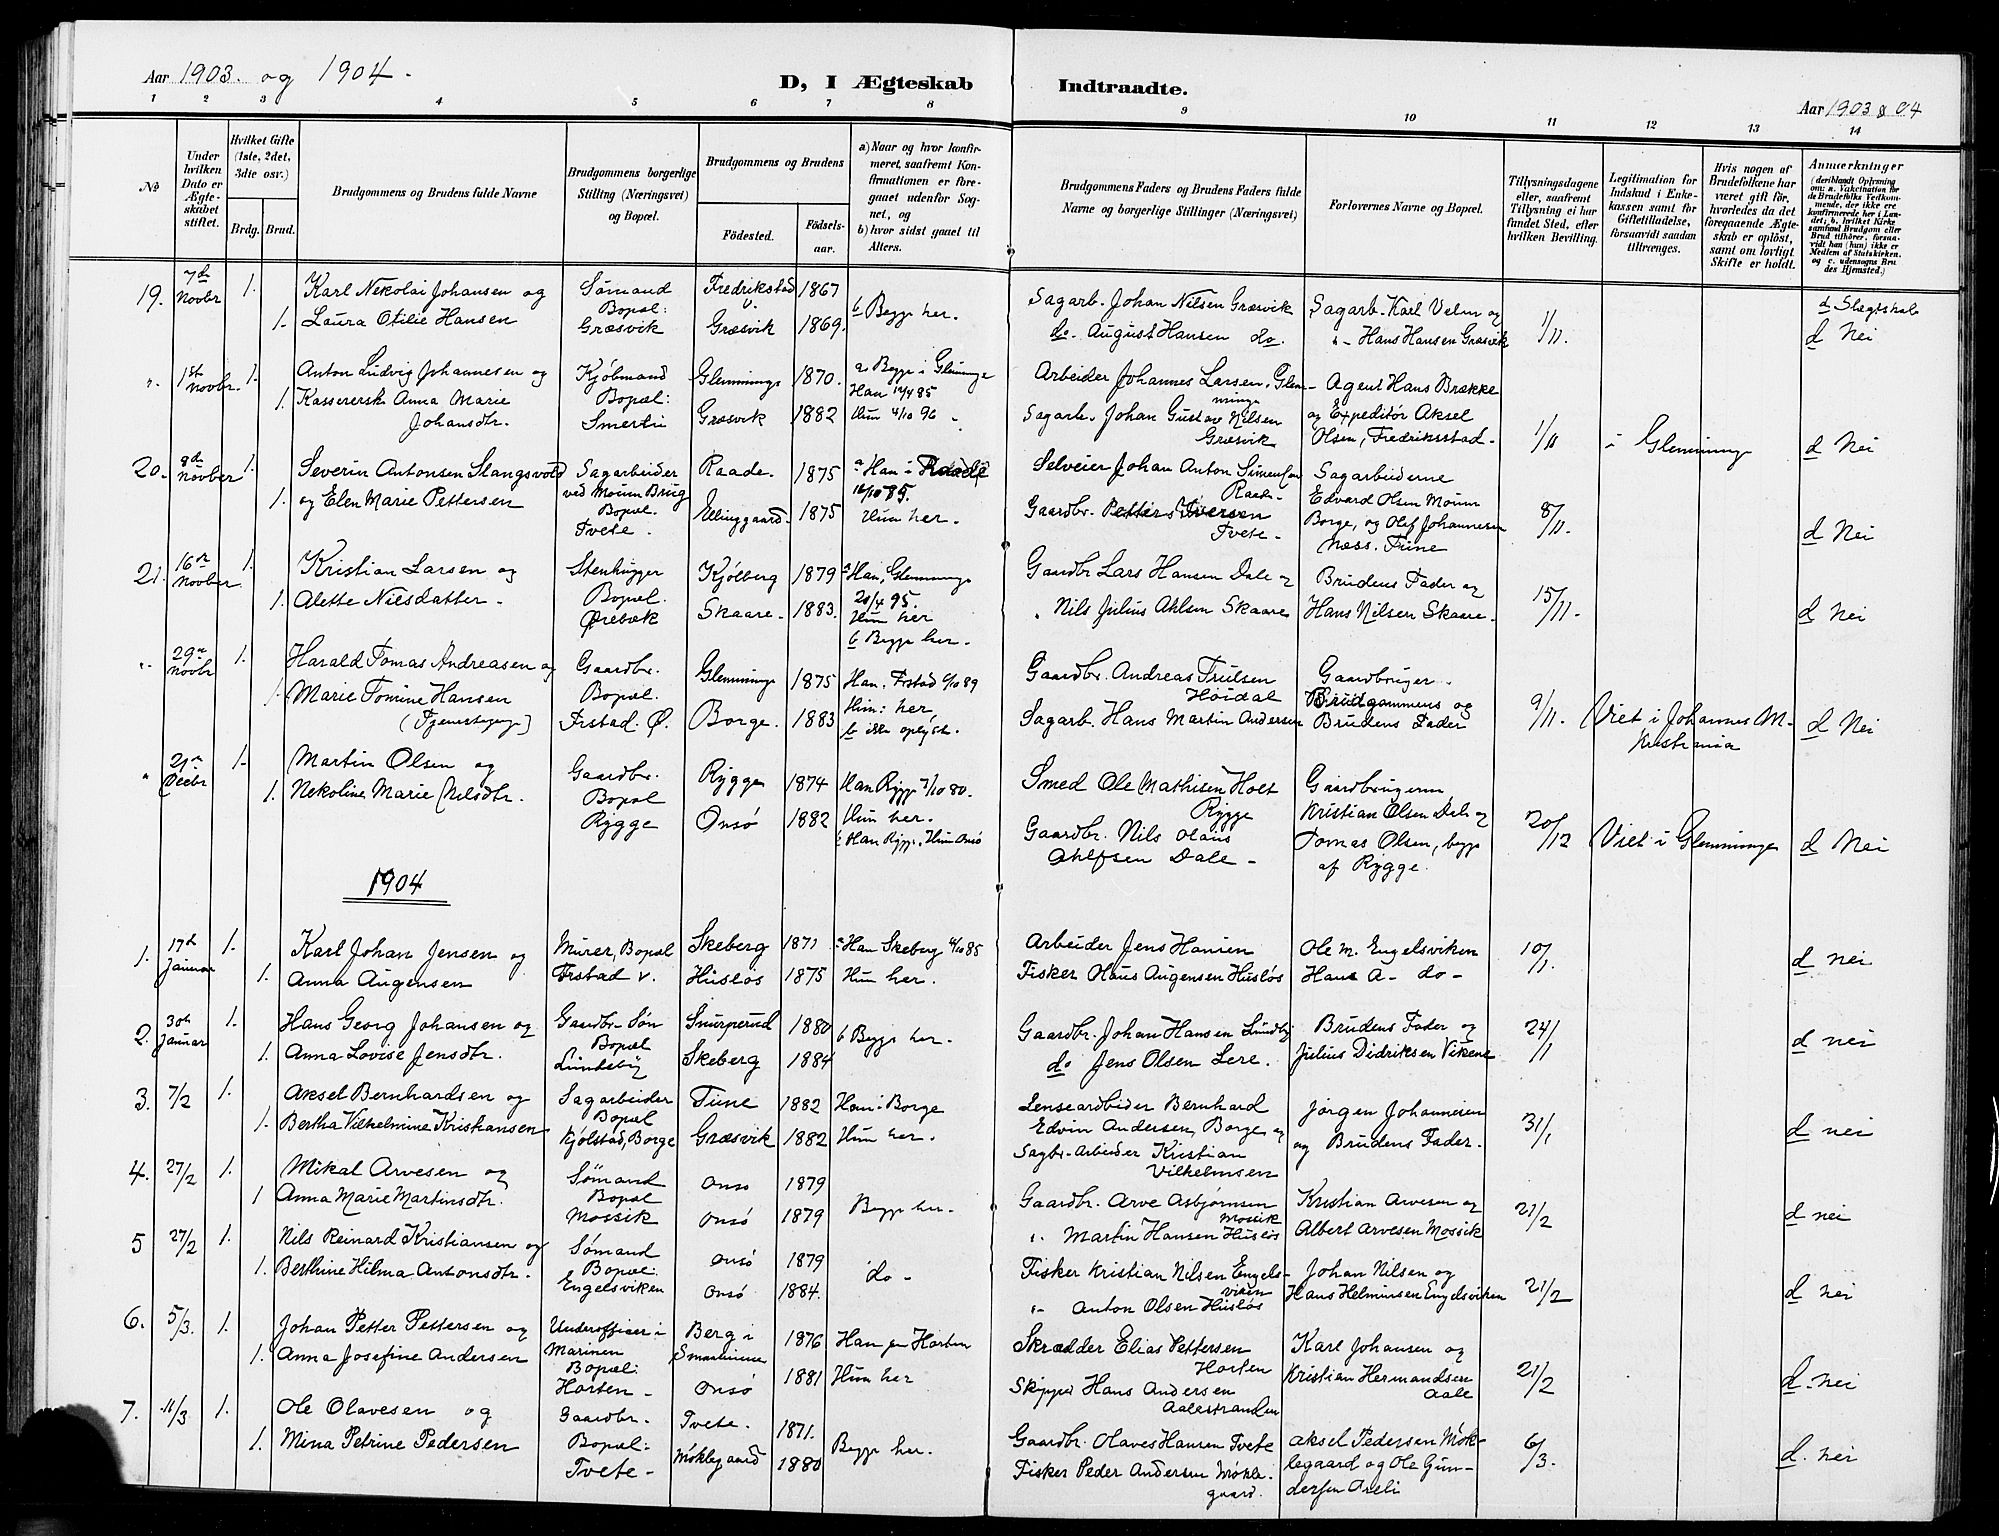 Aar 1903. og 1904.
D, I Ægteskab Indtraadte.
Aar 1903 & 04
1 2 3 4 5 6 7 8 9 10 11 12 13 14
No
Under hvilken Dato er Ægteskabet stiftet.
Hvilket Gifte (1ste, 2det, 3die osv.)
Brdg. Brud.
Brudgommens og Brudens fulde Navne
Brudgommens borgerlige Stilling (Næringsvei) og Bopæl.
Brudgommens og Brudens
Fødested. Fødselsaar.
a) Naar og hvor konfirmeret, saafremt Konfirmationen er foregaaet udenfor Sognet, og
b) hvor sidst gaaet til Alters.
Brudgommens Faders og Brudens Faders fulde Navne og borgerlige Stillinger (Næringsvei)
Forlovernes Navne og Bopæl.
Tillysningsdagene eller, saafremt Tillysning ei har fundet Sted, efter hvilken Bevilling.
Legitimation for Indskud i Enkekassen samt for Giftetilladelse, forsaavidt saadan tiltrænges.
Hvis nogen af Brudefolkene har været gift før, hvorledes da det foregaaende Ægteskab er opløst, samt om lovligt Skifte er holdt.
Anmerkninger
19. 7de Novbr 1. Karl Nekolai Johansen og Sømand Fredrikstad V. 1867 b Begge her. Sagarb. Johan Nilsen Græsvik Sagarb. Karl og 1/11. d Slægtskab
1. Laura Otilie Hansen Bopæl: Græsvik Græsvik 1869. do. August Hansen do. Hans Hansen Græsvik d Nei
" 1ste Novbr. 1. Anton Ludvig Johannesen og Kjøbmand Glemminge 1870. a Begge i Glemminge Arbeider Johannes Larsen, Glemminge Agent Hans Brække
1. Kassererske Anna Marie Johansdtr. Bopæl: Græsvik 1882 Hun 4/10 96 Sagarb. Johan Gustav Nilsen Græsvik og Expeditør Aksel Olsen, Fredriksstad- 1/11 i Glemminge d Nei
20. 8de Novber 1. Severin Antonsen Slangsvold Sagarbeider Raade. 1875 a Han i Raade 16/10 85. Selveier Johan Anton Simensen Raade- Sagarbeiderne
1. og Elen Marie Pettersen ved Moum Brug Bopæl. Tvete. Ellinggaard. 1875 Hun her. Gaardbr. Petter Iversen Tvete- Edvard Olsen Moum Borge, og Olef Johannesen Næss. Tune 8/11. d Nei
21. 16de Novber 1. Kristian Larsen og Stenhugger Kjølberg 1879 a Han, Glemminge 20/4 95. Gaardbr Lars Hansen Dale og Brudens Fader og 15/11.
1. Alette Nilsdatter. Bopæl. Ørebæk Skaare. 1883. Hun her b Begge her. " Nils Julius Ahlsen Skaare Hans Nilsen Skaare. d Nei
" 29de Novbr 1. Harald Tomas Andreasen og Gaardbr. Glemminge 1875 Han. Frstad 6/10 89 Gaardbr. Andreas Trulsen Høidal Gaardbruger.
1 Marie Tomine Hansen (Tjenestepige) Bopæl. Frstad. Ø. Borge. 1883 Hun: her b ikke oplyst. Sagarb. Hans Martin Andersen Brudgommens og Brudens Fader 9/11. Viet i Johannes M. Kristiania d Nei
" 21de Decbr 1. Martin Olsen og Gaardbr. Rygge 1874 Han Rygge 3/10 80. Smed Ole Mathisen Holt Rygge Gaardbrugerne
1. Nekoline Marie Nilsdtr. Bopæl Rygge Onsø 1882 Hun her. b Han Rygge, Hun Onsø Gaardbr. Nils Olaus Ahlfsen Dale- Kristian Olsen Dale og Tomas Olsen, begge af Rygge. 20/12 Viet i Glemminge d Nei
1904
1. 17de Januar 1. Karl Johan Jensen og Murer, Bopæl Skeberg 1871 a Han Skeberg 4/10 85 Arbeider Jens Hansen Ole M. Engelsviken 10/1.
1. Anna Augensen Frstad V. Husløs 1875 Hun her. Fisker Hans Augensen Husløs Hans A- do- d nei
2. 30te Januar 1. Hans Georg Johansen og Gaardbr-Søn Snurperud 1880 b Begge her. Gaardbr. Johan Hansen Lundby Brudens Fader og 24/1
1. Anna Lovise Jensdtr. Bopæl Lundeby Skeberg 1884 do Jens Olsen Lere. Julius Didriksen Vikene d nei
3. 7/2 1. Aksel Bernhardsen og Sagarbeider Tune 1882 Han i Borge Lensearbeider Bernhard Edvin Andersen, Borge og Jørgen Johannesen 31/1
1. Bertha Vilhelmine Kristiansen Bopæl Kjølstad, Borge Græsvik 1882 Hun her. Sagbr-Arbeider Kristian Vilhelmsen og Brudens Fader. d nei
4. 27/2 1. Mikal Arvesen og Sømand Onsø 1879 Begge her. Gaardbr. Arve Asbjørnsen Mossik Kristian Arvesen og 21/2
1 Anna Marie Martinsdtr. Bopæl Mossik Onsø 1879 " Martin Hansen Husløs Albert Arvesen Mossik d nei
5 27/2 1. Nils Reinard Kristiansen og Sømand Onsø 1879 do- Fisker Kristian Nilsen Engelsviken Johan Nilsen og 21/2
1. Berthine Hilma Antonsdtr. Bopæl: Engelsviken Onsø 1884. "- Anton Olsen Husløs Hans Helmersen Engelsviken d nei
6. 5/3. 1. Johan Petter Pettersen og Underofficer i Marinen Berg i Smaalenene 1876 Han Horten Skrædder Elias Pettersen Horten Karl Johansen og 21/2
1. Anna Josefine Andersen Bopæl: Horten- Onsø 1881 Hun her Skipper Hans Andersen Aalestranden Kristian Hermandsen Aale d. nei
7. 11/3 1. Ole Olavesen og Gaardbr. Tvete. 1871. Begge her. Gaardbr. Olaves Hansen Tvete Aksel Pedersen Møklegaard og Ole Gundersen 6/3.
1. Mina Petrine Pedersen Bopæl: Tvete- Møklegaard 1880 Fisker Peder Andersen Møklegaard. d. nei